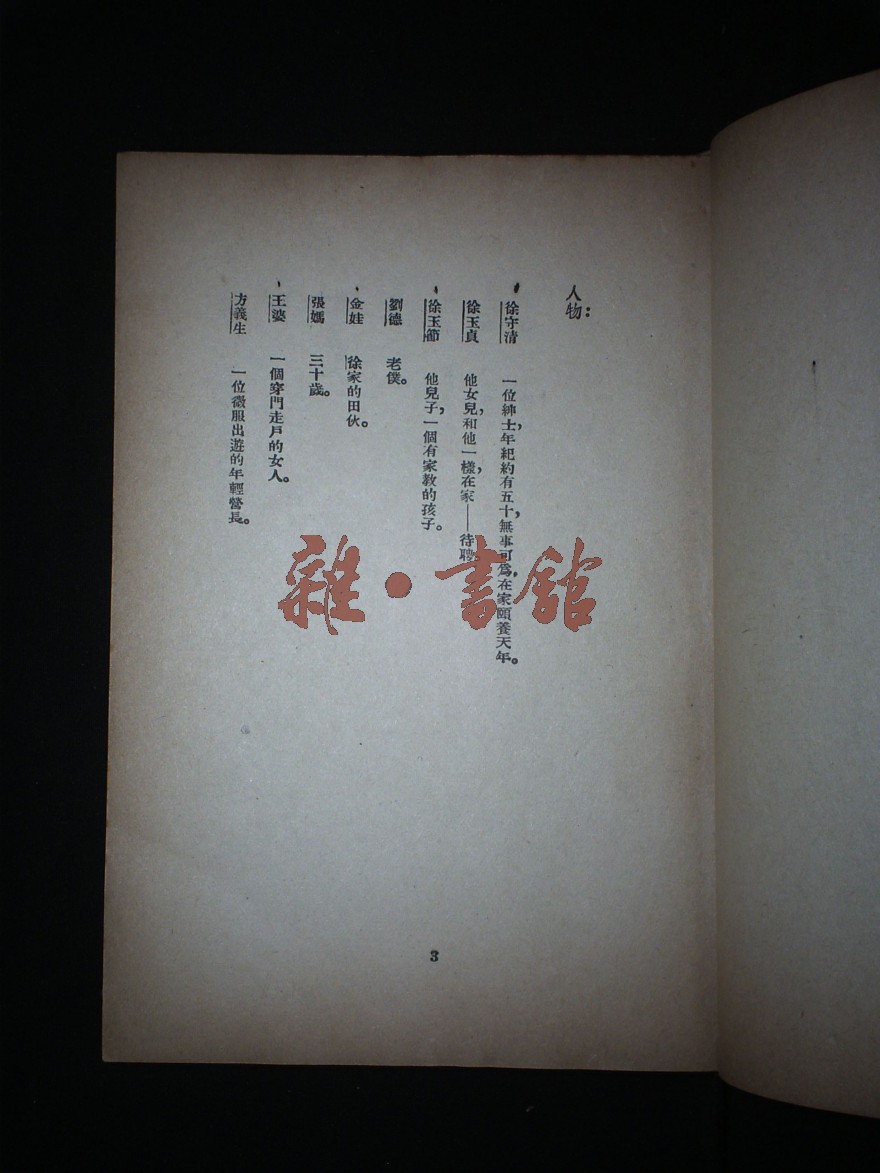 人物：
徐守清　一位紳士，年紀約有五十，無事可爲，在家頤養天年。
徐玉貞　他女兒，和他一樣，在家——待聘
徐玉節　他兒子，一個有家教的孩子。
劉德　老僕。
金娃　徐家的田伙。
張媽　三十歲。
王婆　一個穿門走戶的女人。
方義生　一位微服出遊的年輕營長。
3
雜·書館